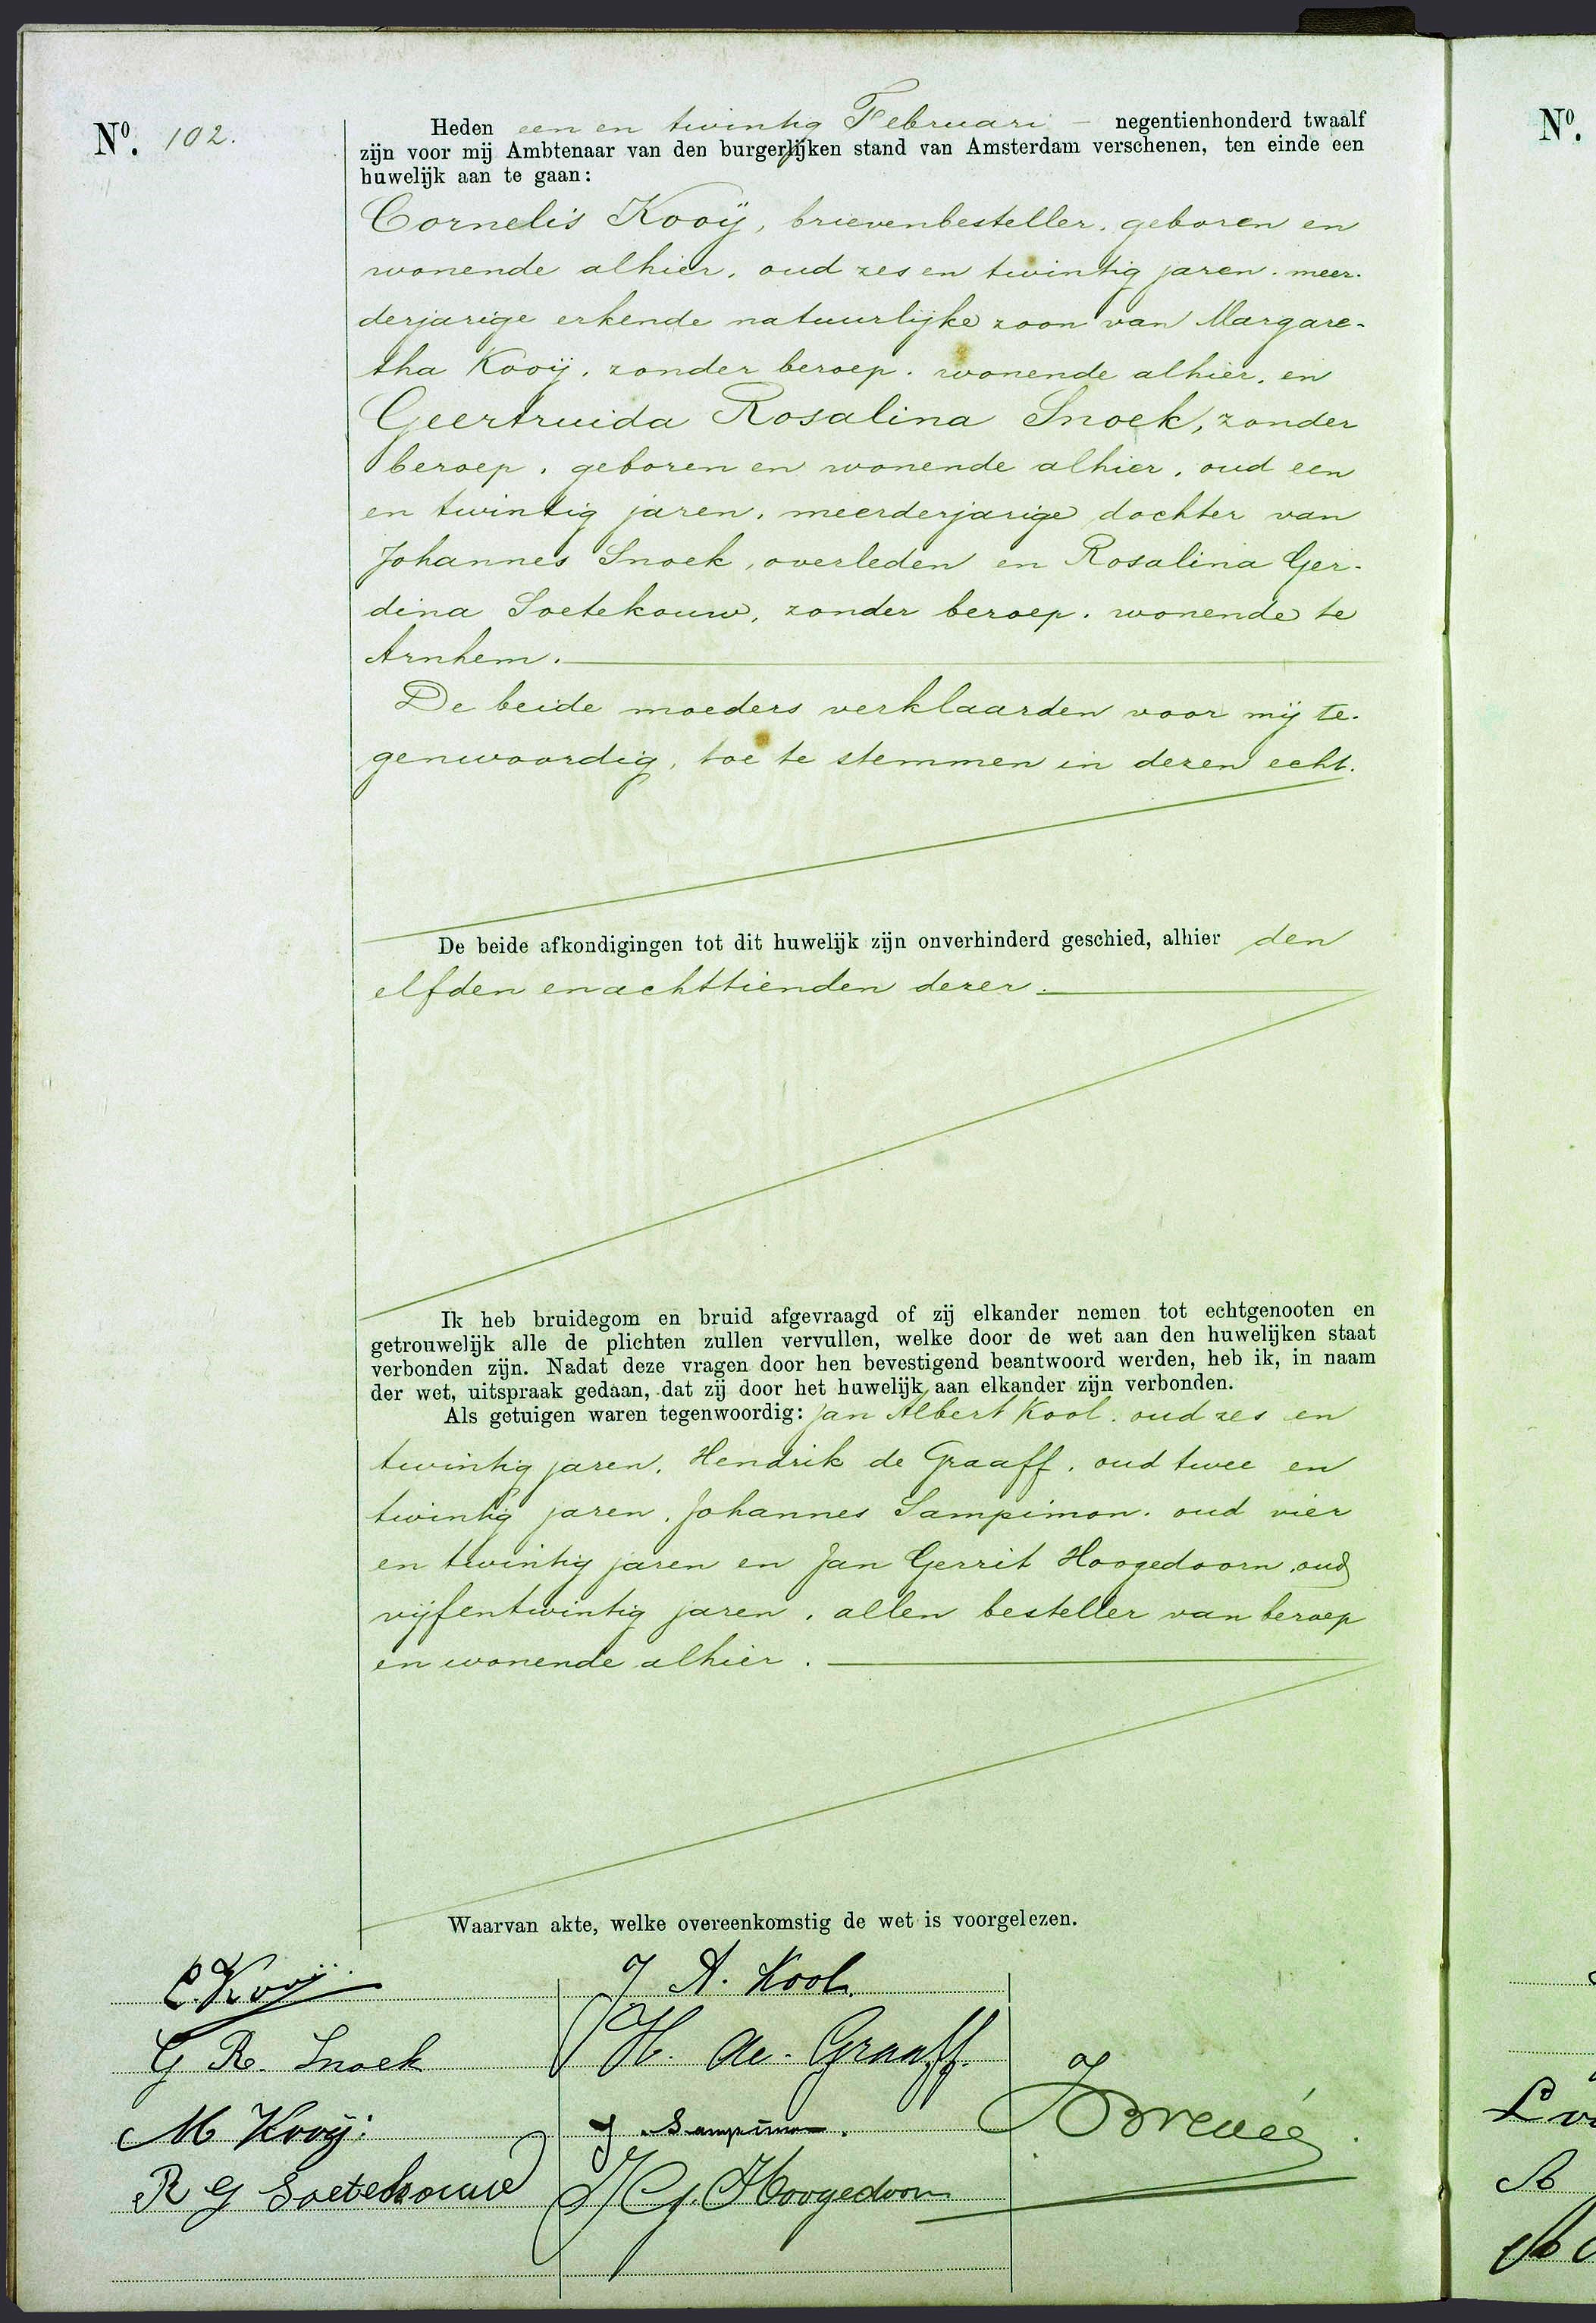 No. 102.
Heden een en twintig Februari – negentienhonderd twaalf
zijn voor mij Ambtenaar van den burgerlijken stand van Amsterdam verschenen, ten einde een
huwelijk aan te gaan:
Cornelis Kooij, brievenbesteller, geboren en
wonende alhier, oud zes en twintig jaren, meer-
derjarige erkende natuurlijke zoon van Margare-
tha Kooij, zonder beroep, wonende alhier, en
Geertruida Rosalina Snoek, zonder
beroep, geboren en wonende alhier, oud een
en twintig jaren, meerderjarige dochter van
Johannes Snoek, overleden en Rosalina Ger-
dina Soetekouw, zonder beroep, wonende te
Arnhem.
De beide moeders verklaarden voor mij te-
genwoordig, toe te stemmen in dezen echt.
De beide afkondigingen tot dit huwelijk zijn onverhinderd geschied, alhier den
elfden en achttienden dezer.
Ik heb bruidegom en bruid afgevraagd of zij elkander nemen tot echtgenooten en
getrouwelijk alle de plichten zullen vervullen, welke door de wet aan den huwelijken staat
verbonden zijn. Nadat deze vragen door hen bevestigend beantwoord werden, heb ik, in naam
der wet, uitspraak gedaan, dat zij door het huwelijk aan elkander zijn verbonden.
Als getuigen waren tegenwoordig: Jan Albert Kool, oud zes en
twintig jaren, Hendrik de Graaff, oud twee en
twintig jaren, Johannes Sampimon, oud vier
en twintig jaren en Jan Gerrit Hoogedoorn, oud
vijfentwintig jaren, allen besteller van beroep
en wonende alhier.
Waarvan akte, welke overeenkomstig de wet is voorgelezen.
C. Kooij
G R. Snoek
M Kooij.
R G Soetekouw
J A. Kool.
H. de. Graaff.
J. Sampimon.
J G. Hoogedoorn
No.